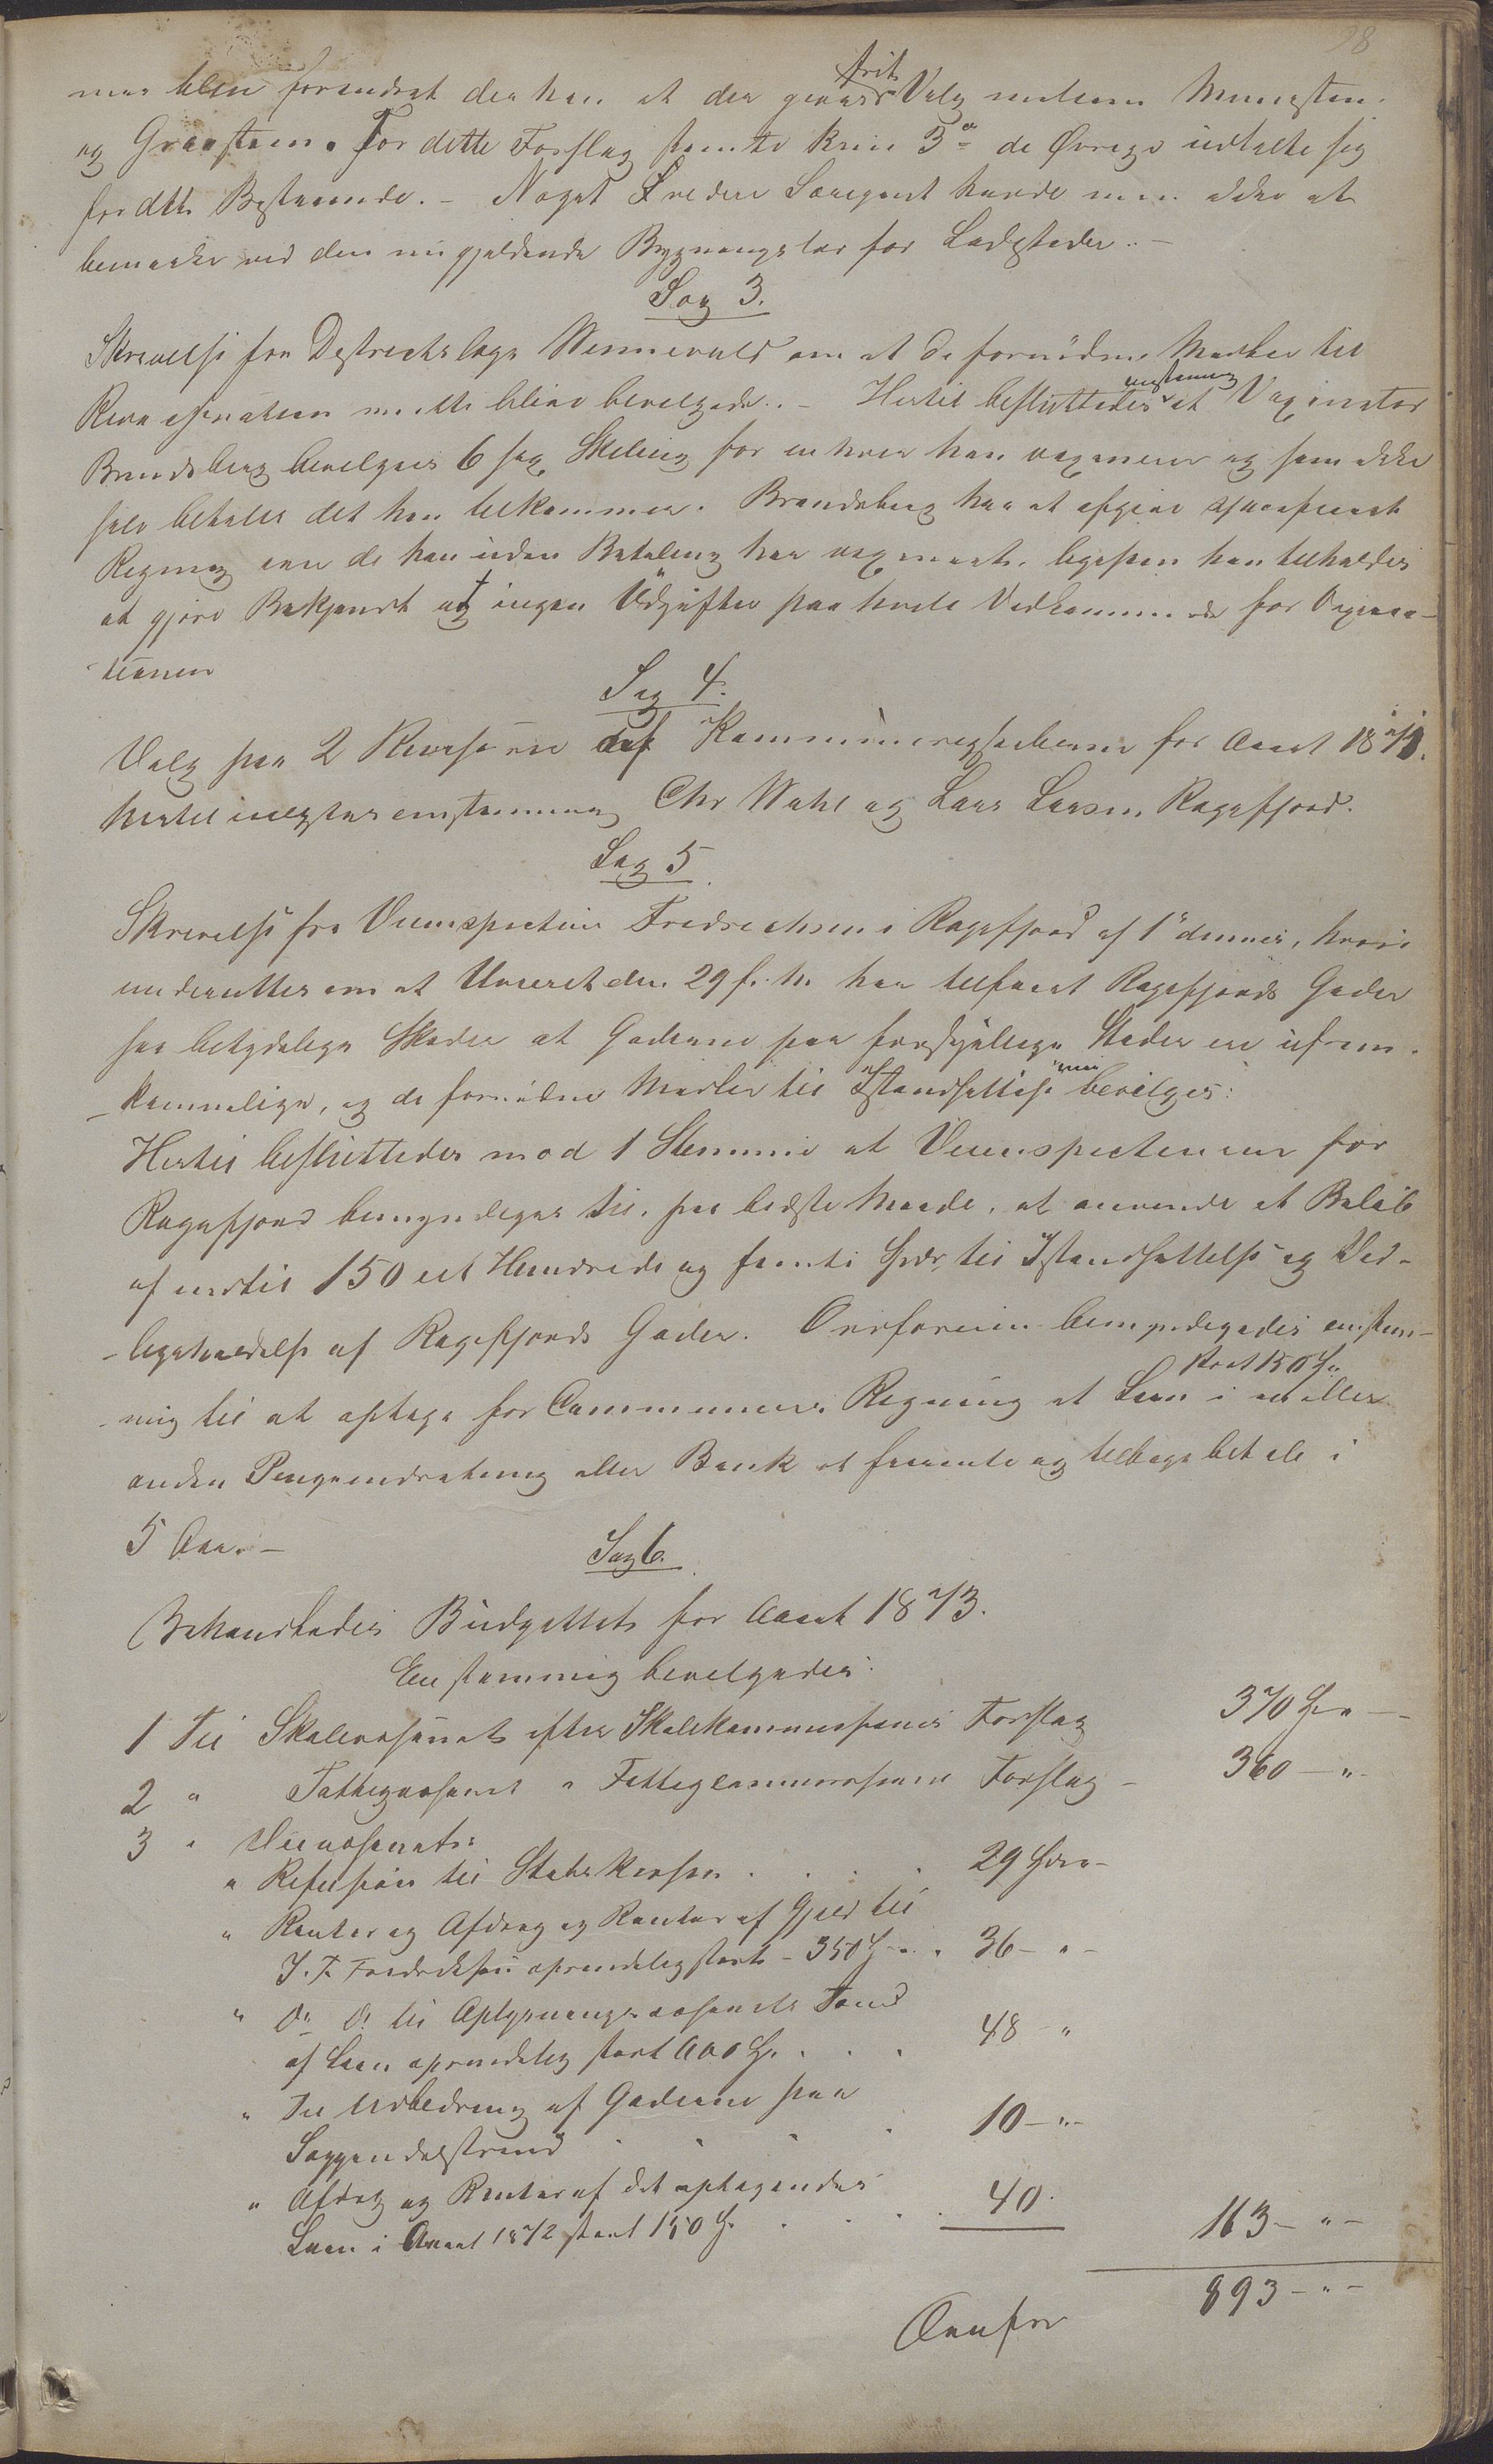 98
maa blive forandret derhen at der gives frit Valg mellem Muursten
og Graasten. For dette Forslag stemte kun 3de de Øvrige udtalte sig
for dtte Bestaaende. – Noget Videre Særegent havde man ikke at
bemærke ved den nugjeldende Bygningslov for Ladesteder. –
Sag 3.
Skrivelse fra Destrectslæge Wennevold om at de fornødne Midler til
Revacsination maatte blive bevilgede. – Hertil besluttedes enstemmig at Vaxinatør
Brandsberg bevilges 6 sex Skilling for enhver han vaxinerer og som ikke
selv betaler det han tilkommer. Brandsberg har at afgive spesefiseret
Regning over de han uden Betaling har vaxineret, ligesom han tilholdes
at gjøre Bekjendt at ingen Udgifter paa hviler Vedkommende for Vaxina-
tionen
Sag 4.
Valg paa 2 Revisorer af Kommuneregnskaberne for Aaret 1871.
hertil valgtes enstemmig Chr Wahl og Lars Larsen Rægefjord.
Sag 5
Skrivelse fra Veiinspecteur Fredrechsen i Rægefjord af 1ste dennes, hvori
underrettes om at Uveiret den 29 f. M. har tilføiet Rægefjords Gader
saa betydelige Skader at Gaderne paa forskjellige Steder ere ufrem-
kommelige, og de fornødne Midler til Istandsættelse maa bevilges:
Hertil besluttedes mod 1 Stemme at Veiinspecteuren for
Rægefjord bemyndiges til, paa bedste Maade, at anvende et Beløb
af indtil 150 et Hundrede og femti Spdr, til Istandsættelse og Ved-
ligeholdelse af Rægefjords Gader. Ordføreren bemyndigedes enstem-
mig til at optage for Communens Regning et Laan stort 150 Sp. i en eller
anden Pengeindretning eller Bank at forrente og tilbagebetale i
5 Aar. –
Sag 6.
Behandledes Budgettet for Aaret 1873.
Enstemmig bevilgedes:
1 Til Skolevæsenet efter Skolekommissionens Forslag 370 Sp. " –
2 " Fattigvæsenet " Fattigcommissionens Forslag – 360 – " –
3 " Veivæsenet:
" Refusion til Statskassen . . . . 29 Spd. –
" Renter og Afdrag og Renter af Gjeld til
J. F. Fredriksen oprindelig stort – 350 Sp. . 36 – " –
" Do Do til Oplysningsvæsenets Fond
af Laan oprindelig stort 600 Sp. . . . 48 – "
" Til Udbedring af Gaderne paa
Soggendalstrand . . . . 10 – " –
" Afdrag og Renter af det optagendes
Laan i Aaret 1872 stort 150 Sp. . . . . 40. 163 – " –
893 – " –
Overføres